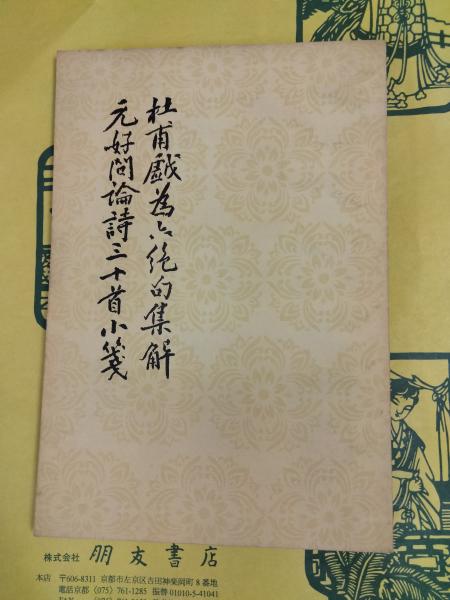 杜甫戲為六絕句集解
元好問論詩三十首小箋
株式会社 朋友書店
本店 〒606-8311 京都市左京区吉田神楽岡町8番地
電話京都(075)761-1285 振替01010-5-41041